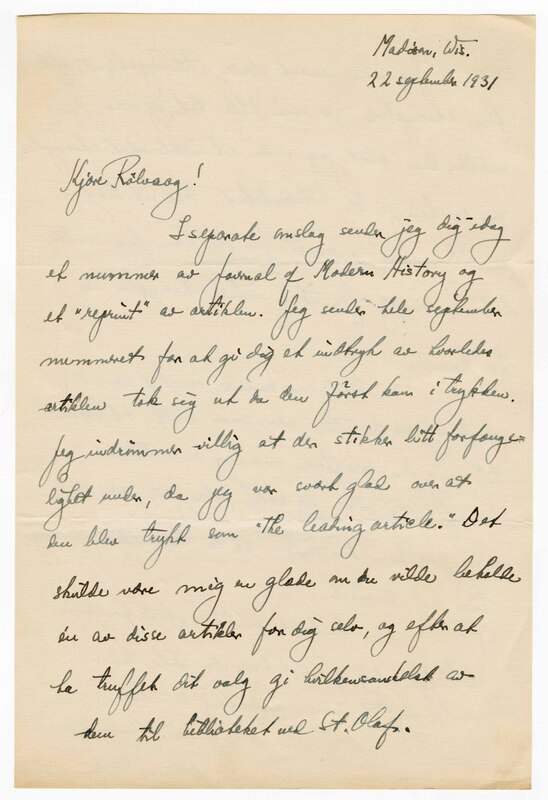 Madison, Wis.
22 september 1931
Kjære Rölvaag!
I separate omslag sender jeg dig idag
et nummer av Journal of Modern History og
et "reprint" av artiklen. Jeg sender hele september
nummeret for at gi dig et indtryk av hvorledes
artiklen tok sig ut da den först kom i trykken.
Jeg indrömmer villig at der stikker litt forfænge-
lighet under, da jeg var svært glad over at
den blev trykt som "the leading article." Det
skulde være mig en glæde om du vilde beholde
én av disse artikler for dig selv, og efter at
ha truffet dit valg gi hvilkensomhelst av
dem til biblioteket ved St. Olaf.